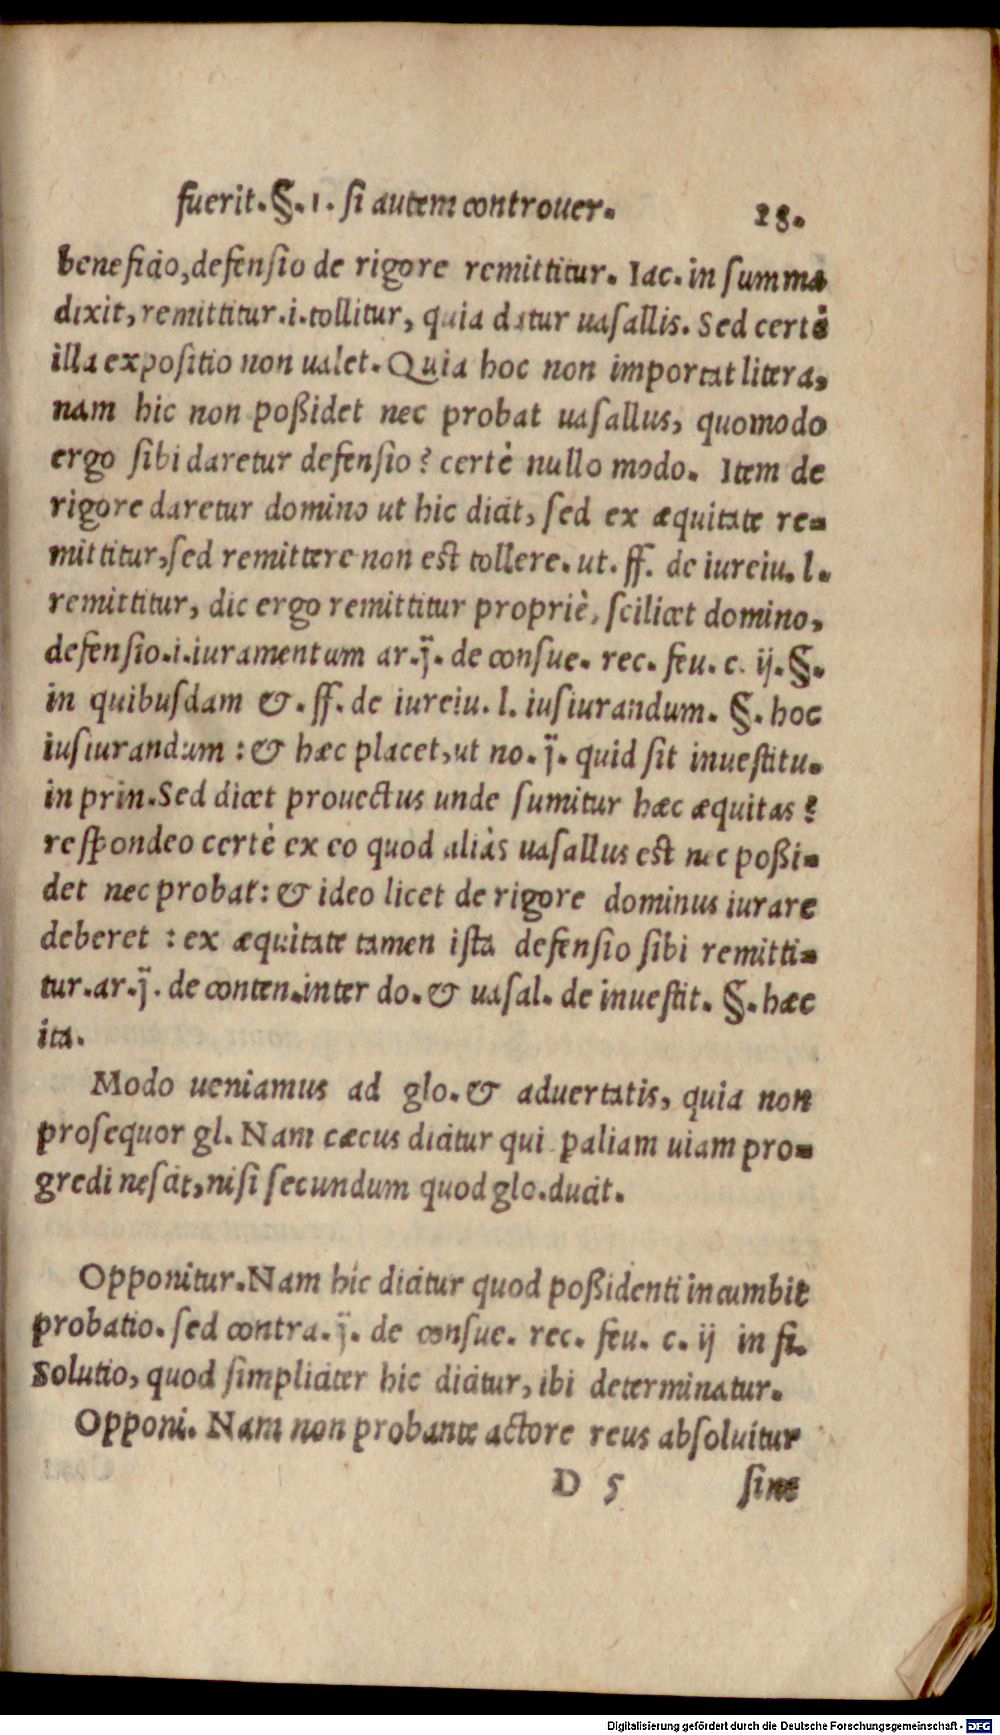 fuerit.§.1. ſi autem controuer. 28.
beneficio,defenſio de rigore remittitur. Iac.in ſumma
dixit, remittitur.i.tollitur, quia datur uaſallis. Sed certè
illa expoſitio non ualet. Quia hoc non importat litera,
nam hic non poßidet nec probat uaſallus, quomodo
ergo ſibi daretur defenſio? certè nullo modo. Item de
rigore daretur domino ut hic dicit, ſed ex æquitate re-
mittitur,ſed remittere non eſt tollere.ut.ff. de iureiu.l.
remittitur, dic ergo remittitur propriè, ſcilicet domino,
defenſio.i.iuramentum ar.j̈. de conſue. rec. feu. c. ij.§.
in quibuſdam &.ff.de iureiu.l. iuſiurandum. §. hoc
iuſiurandum : & hæc placet,ut no.j̈. quid ſit inueſtitu.
in prin.Sed dicet prouectus unde ſumitur hæc æquitas?
reſpondeo certè ex eo quod aliàs uaſallus eſt nec poßi-
det nec probat: & ideo licet de rigore dominus iurare
deberet : ex æquitate tamen iſta defenſio ſibi remitti-
tur.ar.j̈. de conten.inter do.& uaſal. de inueſtit. §.hæc
ita.
Modo ueniamus ad glo.& aduertatis, quia non
proſequor gl. Nam cæcus dicitur qui paliam uiam pro-
gredi neſcit,niſi ſecundum quod glo.ducit.
Opponitur.Nam hic dicitur quod poßidenti incumbit
probatio. ſed contra.j̈. de conſue. rec. feu. c. ij in fi.
Solutio, quod ſimpliciter hic dicitur, ibi determinatur.
Opponi. Nam non probante actore reus abſoluitur
D 5 ſine
Digitalisierung gefördert durch die Deutsche Forschungsgemeinschaft - DFG